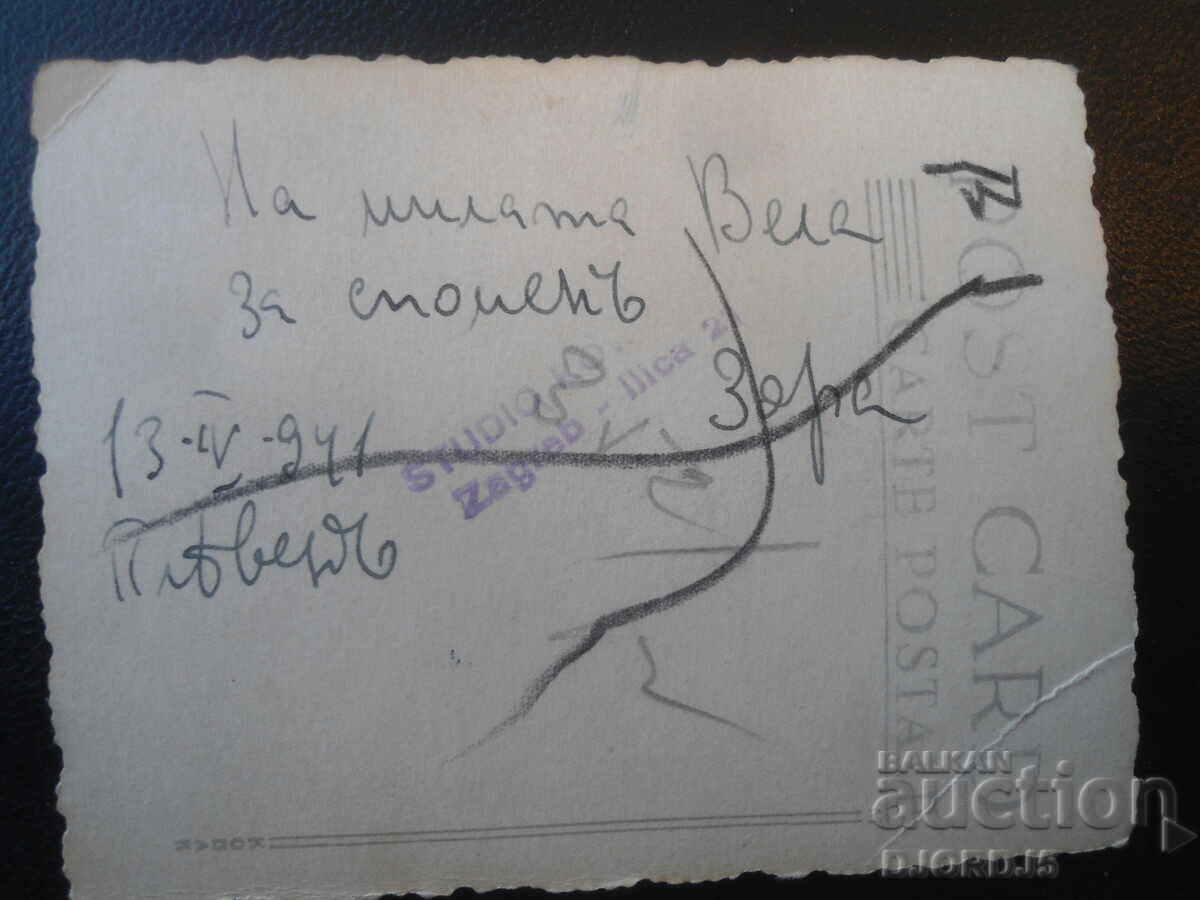 На милата Вела
за споменъ
Зара
13-IV-941
Плѣвенъ
STUDIO
Zagreb - Ilica 2
POST CARD
CARTE POSTA
BALKAN
auction
DJORDJ5